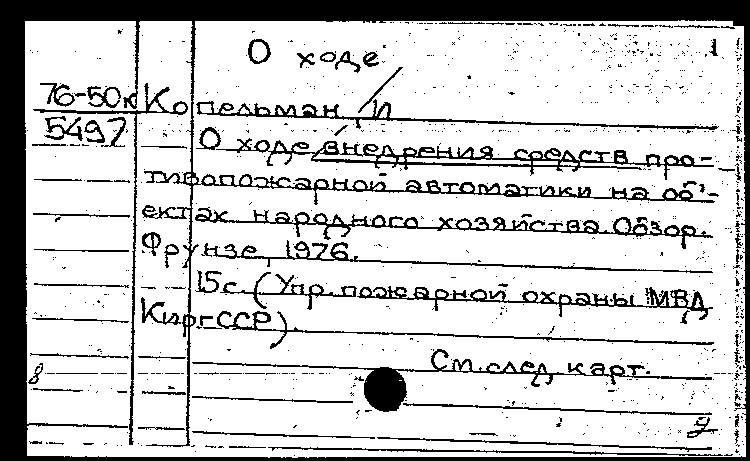 О ходе
1
76-50к Копельман, И
5497
О ходе внедрения средств про-
тивопожарной автоматики на об'-
ектах народного хозяйства. Обзор.
Фрунзе, 1976.
15с. (Упр. пожарной охраны МВД
КиргССР).
См. след карт.
8
2